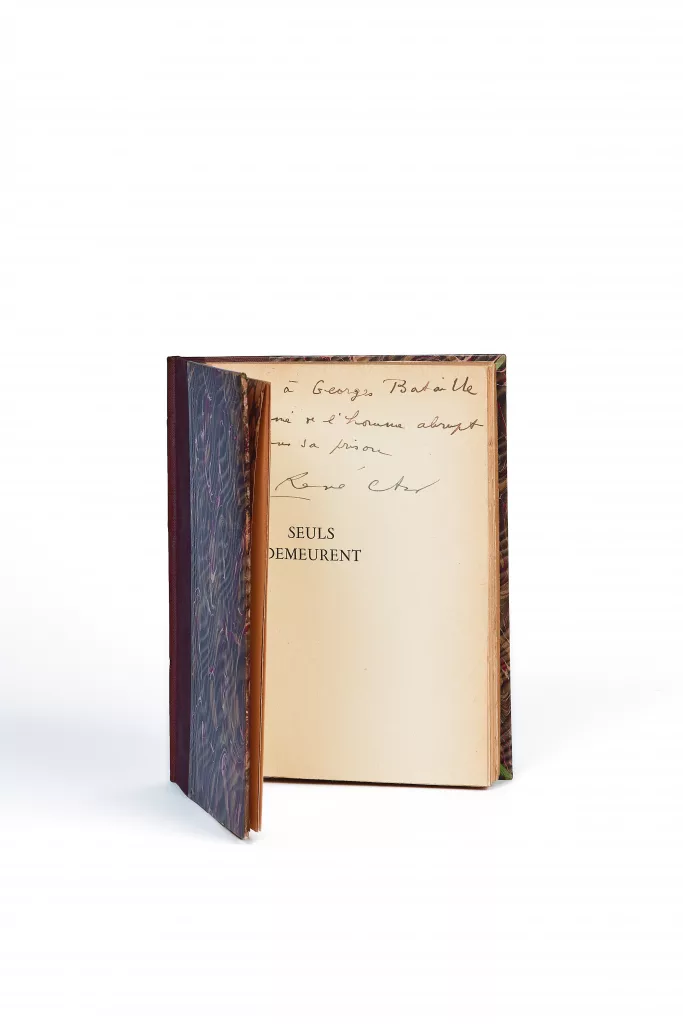 à Georges Bataille
de l'homme abrupt
sa prison
René Char
SEULS
DEMEURENT